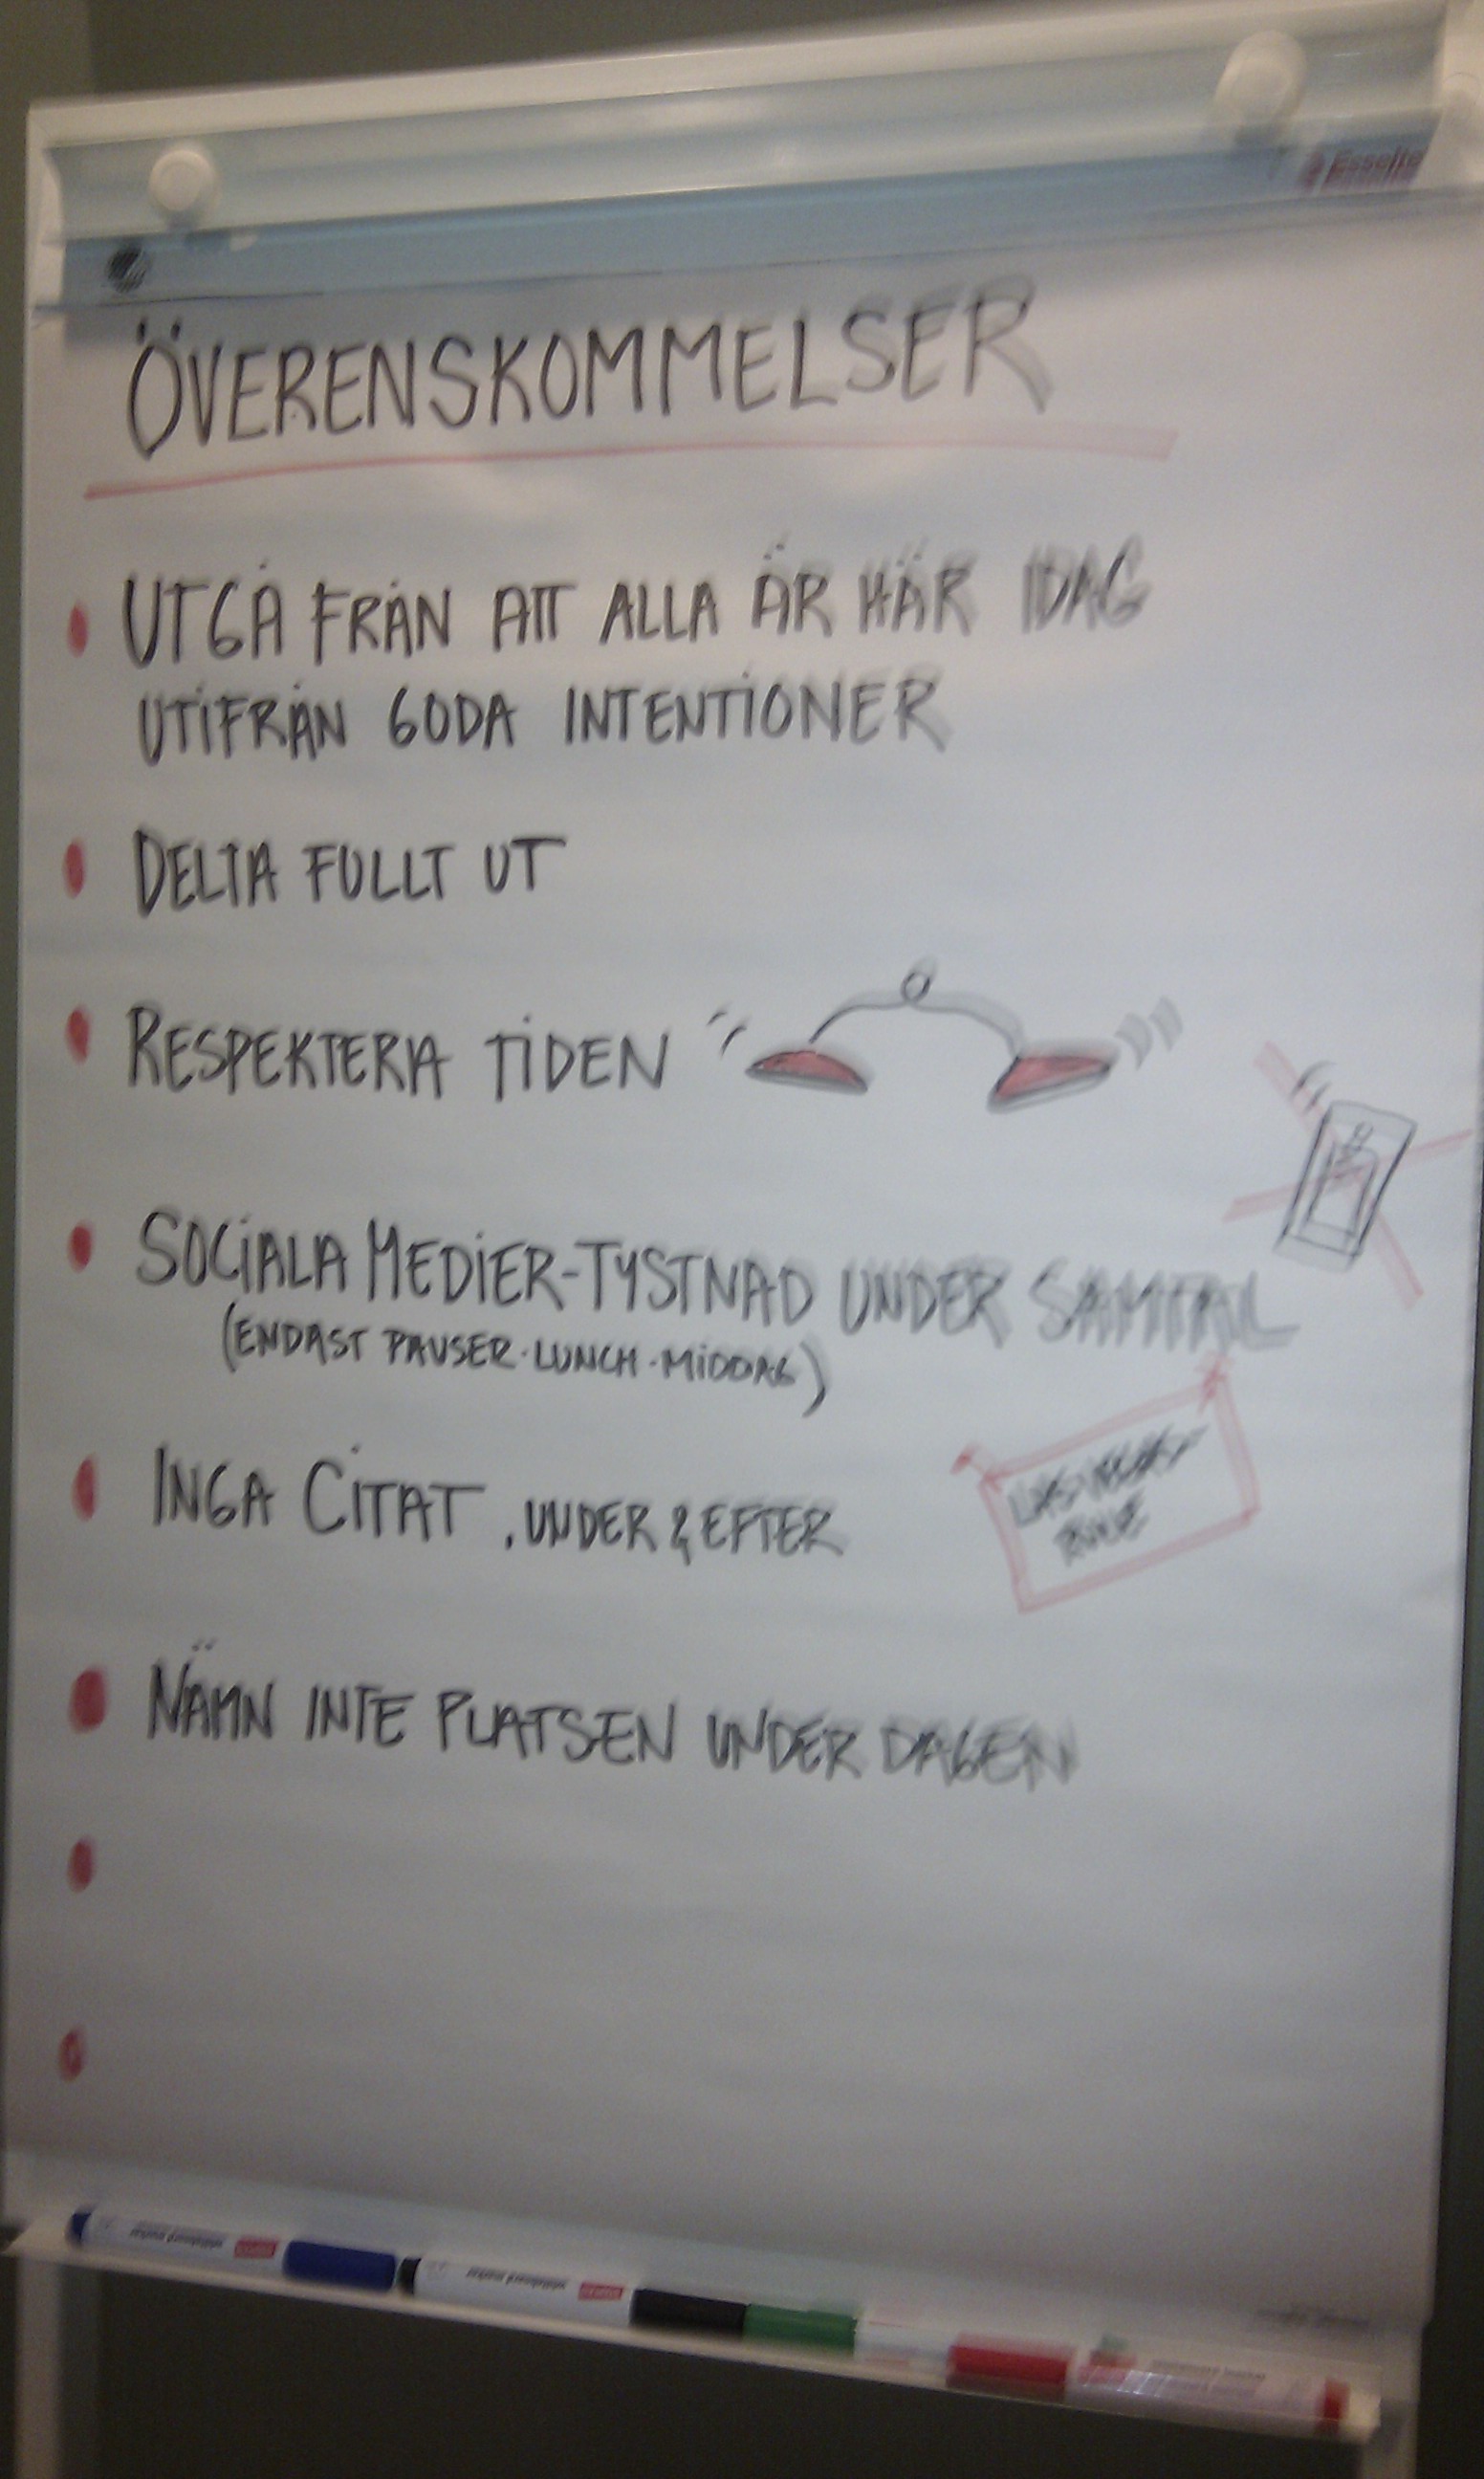 Esselte
ÖVERENSKOMMELSER
UTGÅ FRÅN ATT ALLA ÄR HÄR IDAG
UTIFRÅN GODA INTENTIONER
DELTA FULLT UT
RESPEKTERA TIDEN
SOCIALA MEDIER-TYSTNAD UNDER SAMTAL
(ENDAST PAUSER·LUNCH·MIDDAG)
INGA CITAT . UNDER & EFTER
LAS-VEGAS-
RULE
NÄMN INTE PLATSEN UNDER DAGEN